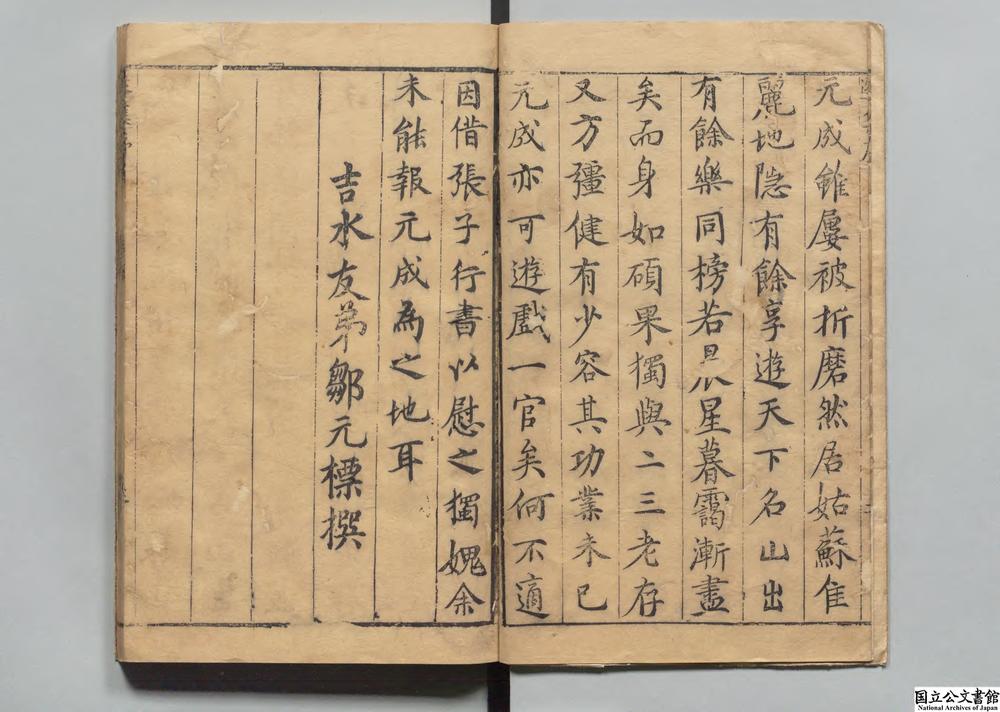 元成雖屢被折磨然居姑蘇佳
麗地隠有餘享遊天下名山出
有餘樂同榜若晨星暮靄漸盡
矣而身如碩果獨與二三老存
又方彊健有少容其功業未已
元成亦可遊戲一官矣何不適
因借張子行書以慰之獨媿余
未能報元成為之地耳
吉水友弟鄒元標撰
国立公文書館
National Archives of Japan